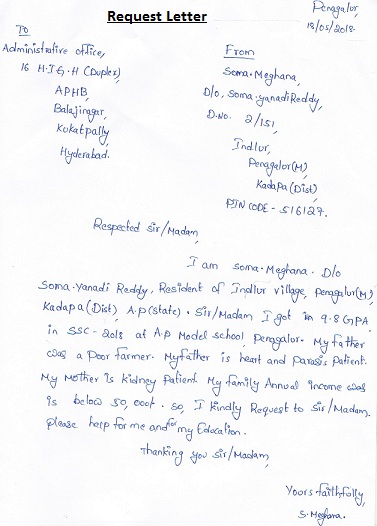 Request Letter
Penagalur,
18/05/2018.
To
Administrative office,
16 H.I.G.H (Duplex),
APHB,
Balajinagar,
Kukatpally,
Hyderabad.
From
Soma.Meghana,
D/o, Soma.yanadiReddy,
D.No. 2/151,
Indlur,
Penagalur(M),
Kadapa(Dist),
PIN CODE - 516127.
Respected Sir/Madam,
I am Soma.Meghana. D/o
Soma.Yanadi Reddy, Resident of Indlur village, Penagalur(M),
Kadapa(Dist), A.P(state). Sir/Madam I got in 9.8 GPA
in SSC-2018 at A.p Model school, Penagalur. My father
was a Poor farmer. Myfather is heart and Parasis Patient.
My Mother is kidney Patient. My family Annual income was
is below 50,000/-. So, I kindly Request to Sir/Madam.
please help for me and for my Education.
Thanking you Sir/Madam,
Yours faithfully,
S. Meghana.